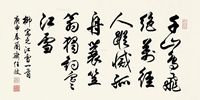 千山鳥飛
絕萬徑
人蹤滅孤
舟蓑笠
翁獨釣寒
江雪
柳宗元江雪一首
任政